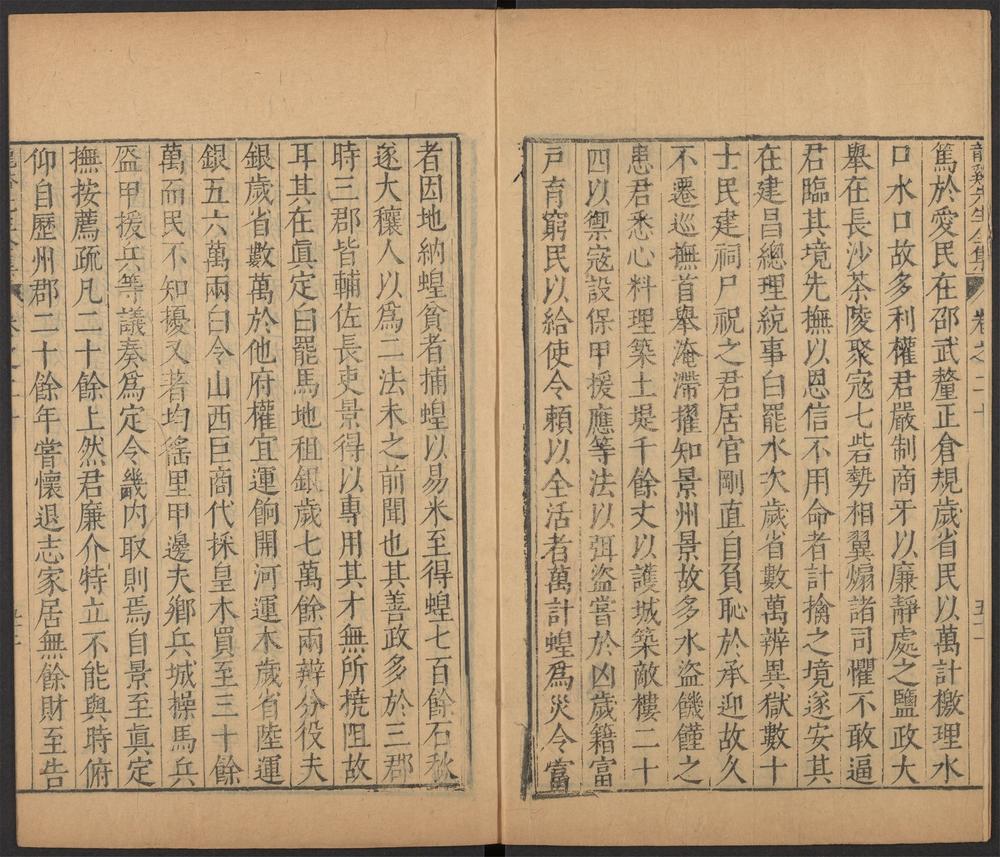 篤於愛民在邵武釐正倉規歲省民以萬計檄理水
口水口故多利權君嚴制商牙以廉靜處之鹽政大
舉在長沙茶陵聚寇七砦勢相翼煽諸司懼不敢逼
君臨其境先撫以恩信不用命者計擒之境遂安其
在建昌總理統事白罷水次歲省數萬辨異獄數十
士民建祠尸祝之君居官剛直自負恥於承迎故久
不遷巡撫首舉淹滯擢知景州景故多水盜饑饉之
患君悉心料理築土堤千餘丈以護城築敵樓二十
四以禦寇設保甲援應等法以弭盜嘗於凶歲籍富
戸育窮民以給使令頼以全活者萬計蝗爲災令富
者因地納蝗貧者捕蝗以易米至得蝗七百餘石秋
遂大穰人以爲二法未之前聞也其善政多於三郡
時三郡皆輔佐長吏景得以專用其才無所撓阻故
耳其在眞定曰罷馬地租銀歲七萬餘兩辨分役夫
銀歲省數萬於他府權宜運餉開河運木歲省陸運
銀五六萬兩白令山西巨商代採皇木買至三十餘
萬而民不知擾又著均徭里甲邊夫鄉兵城操馬兵
盔甲援兵等議奏爲定令畿内取則焉自景至眞定
撫按薦疏凡二十餘上然君廉介特立不能與時俯
仰自歷州郡二十餘年嘗懷退志家居無餘財至告